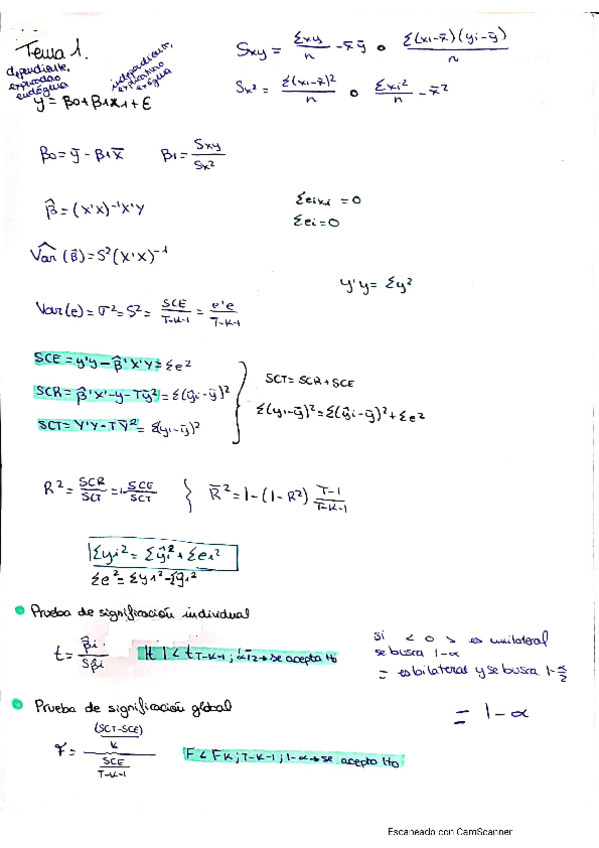 Tema 1.
dependiente, explicada endógena
independiente, explicativa exógena
y = β0 + β1x1 + ε
Sxy = Σxy/n - x̄ȳ o Σ(xi-x̄)(yi-ȳ)/n
Sx² = Σ(xi-x̄)²/n o Σxi²/n - x̄²
β0 = ȳ - β1x̄ β1 = Sxy/Sx²
β̂ = (X'X)⁻¹X'Y
Σeixi = 0
Σei = 0
Var̂(β̂) = S²(X'X)⁻¹
Y'Y = Σy²
Var(e) = σ² = S² = SCE/T-K-1 = e'e/T-K-1
SCE = Y'Y - β̂'X'Y = Σe²
SCR = β̂'X'-y - Tȳ² = Σ(ŷi-ȳ)²
SCT = Y'Y - TȲ² = Σ(yi-ȳ)²
SCT = SCR + SCE
Σ(yi-ȳ)² = Σ(ŷi-ȳ)² + Σe²
R² = SCR/SCT = 1-SCE/SCT } R̄² = 1-(1-R²) T-1/T-K-1
Σyi² = Σŷi² + Σei²
Σe² = Σyi² - Σŷi²
Prueba de significación individual
t = β̂i/Sβ̂i |t| < tT-K-1; α/2 → se acepta H0
si < o > es unilateral
se busca 1-α
= es bilateral y se busca 1-α/2
Prueba de significación global
= 1-α
F = (SCT-SCE)/K / SCE/T-K-1 F < FK; T-K-1; 1-α → se acepta H0
Escaneado con CamScanner